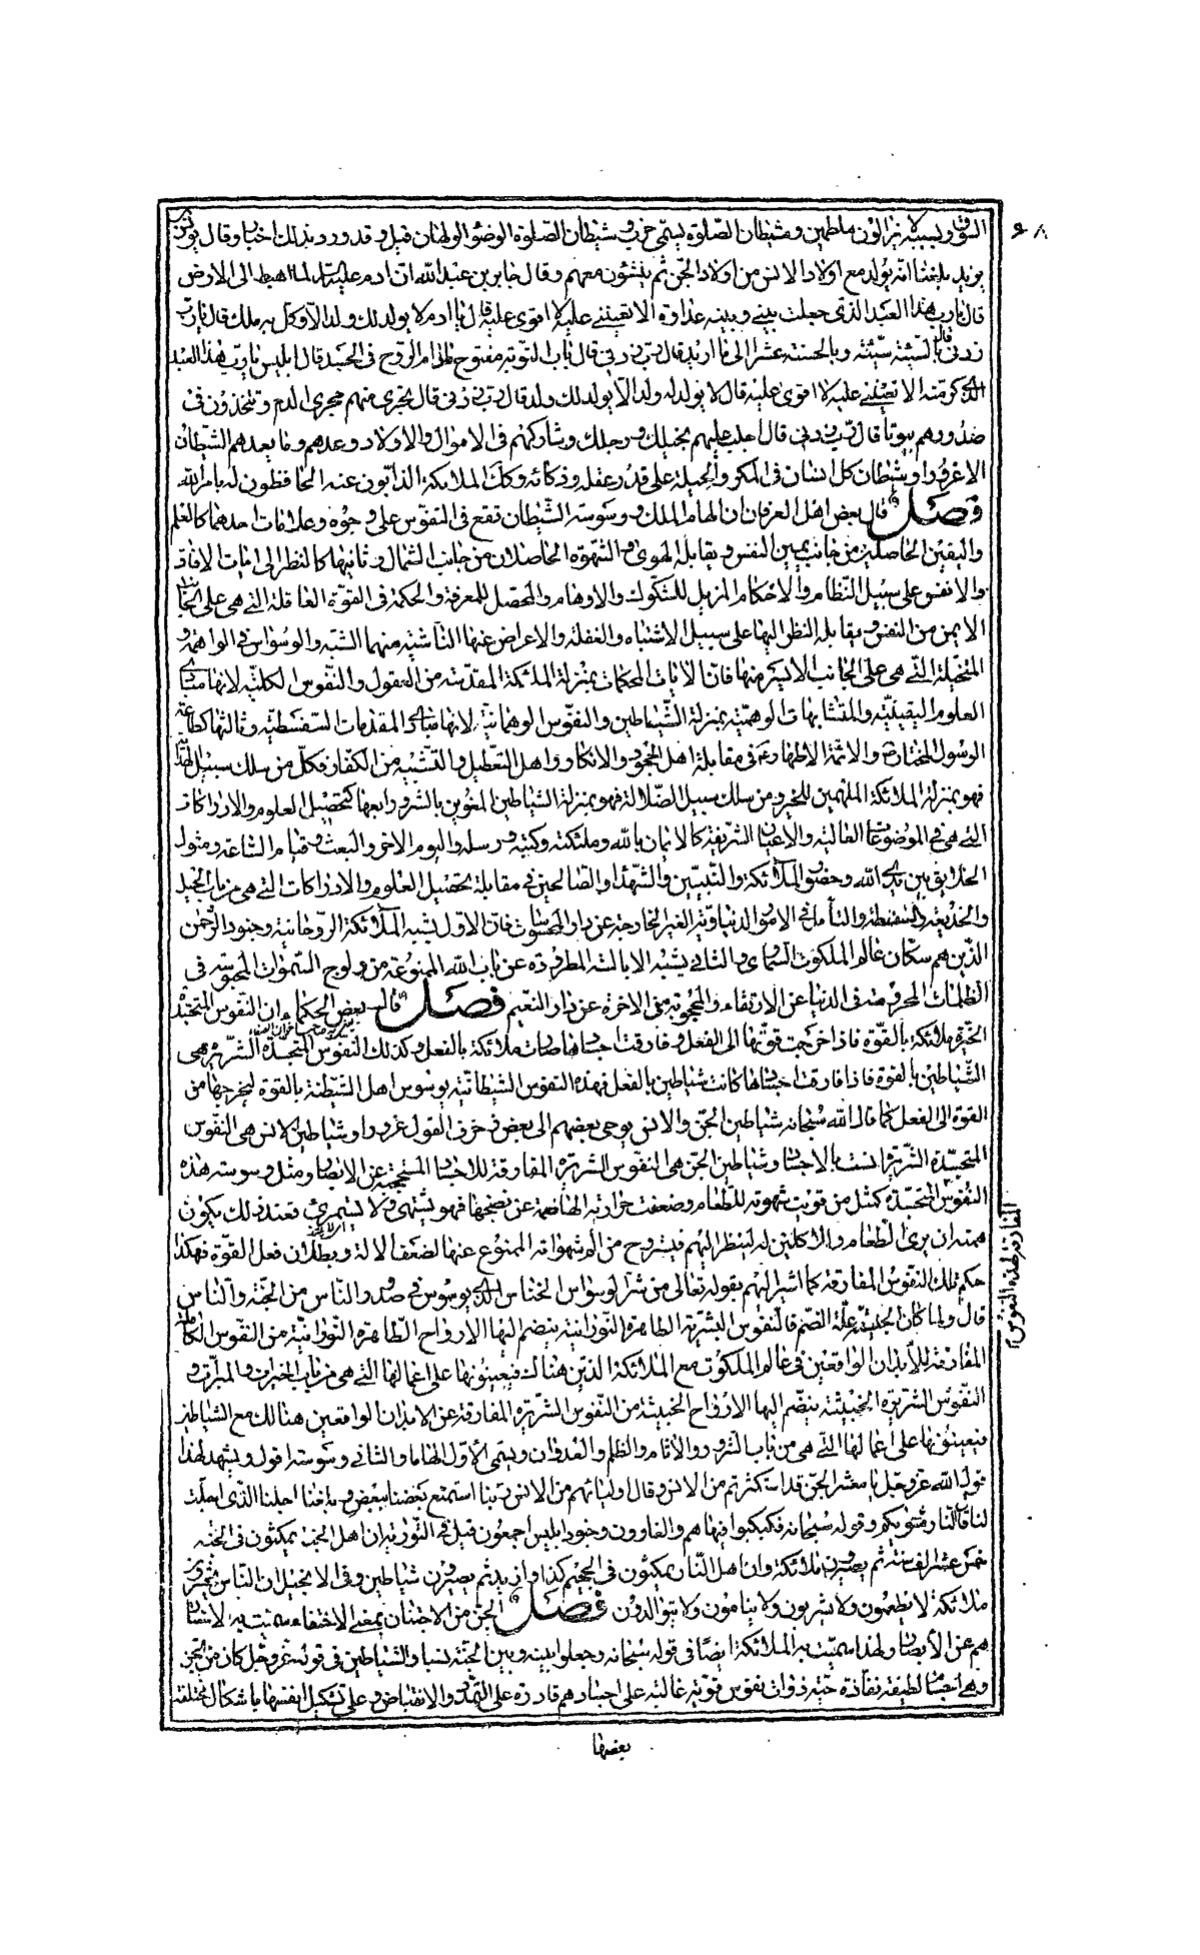 السوق وبسببه لا يزالون ملطمين وشيطان الصلوة يسمى خنزب وشيطان الوضوء الولهان قيل وقد ورد بذلك اخبار وقال يونس بن
يزيد بلغنا انه يولد مع اولاد الانس من اولاد الجن ثم ينشئون معهم وقال جابر بن عبد الله ان ادم عليه السلام لما اهبط الى الارض
قال يارب هذا العبد الذى جعلت بينى وبينه عداوة الا تعيننى عليه لا اقوى عليه قال يا ادم لا يولد لك ولد الا وكل به ملك قال يارب
زدنى قال بالسيئة سيئة وبالحسنة عشرا الى ما اريد قال رب زدنى قال باب التوبة مفتوح مادام الروح فى الجسد قال ابليس يارب هذا العبد
الذى كرمته الا تعيننى عليه لا اقوى عليه قال لا يولد له ولد الا يولد لك ولد قال رب زدنى قال تجرى منهم مجرى الدم وتتخذون فى
صدورهم بيوتا قال رب زدنى قال اجلب عليهم بخيلك ورجلك وشاركهم فى الاموال والاولاد وعدهم وما يعدهم الشيطان
الا غرورا وشيطان كل انسان فى المكر والحيلة على قدر عقله وذكائه وكذا الملائكة الذابون عنه الحافظون له بامر الله
فصل قال بعض اهل العرفان ان الهام الملك ووسوسة الشيطان تقع فى النفوس على وجوه وعلامات احدها كالعلم
واليقين الحاصلين من جانب يمين النفس ويقابله الهوى والشهوة الحاصلان من جانب الشمال وثانيها كالنظر الى ايات الافاق
والانفس على سبيل النظام والاحكام المزيل للشكوك والاوهام والمحصل للمعرفة والحكمة فى القوة العاقلة التى هى على الجانب
الايمن من النفس ويقابله النظر اليها على سبيل الاشتباه والغفلة والاعراض عنها الناشية منهما الشبه والوسواس فى الواهمة و
المتخيلة التى هى على الجانب الايسر منها فان الايات المحكمات بمنزلة الملائكة المقدسة من العقول والنفوس الكلية لانها مبادى
العلوم اليقينية والمتشابهات الوهمية بمنزلة الشياطين والنفوس الوهمانية لانها مبادى المقدمات السفسطية وثالثها كطاعة
الرسول المختار ص والائمة الاطهار ع فى مقابلة اهل الجحود والانكار واهل التعطيل والتشبيه من الكفار فكل من سلك سبيل الهداية
فهو بمنزلة الملائكة الملهمين للخير ومن سلك سبيل الضلالة فهو بمنزلة الشياطين المغوين بالشر ورابعها كتحصيل العلوم والادراكات
التى هى فى الموضوعات العالية والاعيان الشريفة كالايمان بالله وملئكته وكتبه ورسله واليوم الاخر والبعث وقيام الساعة ومثول
الخلايق بين يدى الله وحضور الملائكة والنبيين والشهداء والصالحين فى مقابلة تحصيل العلوم والادراكات التى هى من باب الحيل
والخديعة والسفسطة والتأمل فى الامور الدنياوية الغير الخارجة عن دار المحسوسات فان الاول يشبه الملائكة الروحانية وجنود الرحمن
الذين هم سكان عالم الملكوت السماوى والثانى يشبه الابالسة المطرودة عن باب الله الممنوعة من ولوج السموات المحبوسة فى
الظلمات المحرومة فى الدنيا عن الارتقاء والمحجوبة فى الاخرة عن دار النعيم فصل قال بعض الحكماء ان النفوس المتجسدة
الخيرة ملائكة بالقوة فاذا خرجت قوتها الى الفعل وفارقت اجسادها صارت ملائكة بالفعل وكذلك النفوس المتجسدة الشريرة هى
الشياطين بالقوة فاذا فارقت اجسادها كانت شياطين بالفعل فهذه النفوس الشيطانية يوسوس اهل الشيطنة بالقوة ليخرجها من
القوة الى الفعل كما قال الله سبحانه شياطين الجن والانس يوحى بعضهم الى بعض زخرف القول غرورا وشياطين الانس هى النفوس
المتجسدة الشريرة انست بالاجساد وشياطين الجن هى النفوس الشريرة المفارقة للاجساد المستجنة عن الابصار ومثل وسوسة هذه
النفوس المتجسدة كمثل من قويت شهوته للطعام وضعفت حرارته الهاضمة عن نضجها فهو يشتهى ولا يستمرئ فعند ذلك يكون
همته ان يرى الطعام والاكلين له لينظر اليهم فيستروح من الم شهواته الممنوع عنها لضعف الالة وبطلان فعل القوة فهكذا
حكم تلك النفوس المفارقة كما اشير اليهم بقوله تعالى من شر الوسواس الخناس الذى يوسوس فى صدور الناس من الجنة والناس
المفارقة لهذه النفوس
قال ولما كان الجنسية علة الضم فالنفوس البشرية الطاهرة النورانية ينضم اليها الارواح الطاهرة النورانية من النفوس الكاملة
المفارقة للابدان الواقعين فى عالم الملكوت مع الملائكة الذين هنالك فيعينونها على اعمالها التى هى من باب الخيرات والمبرات و
النفوس الشريرة الخبيثة ينضم اليها الارواح الخبيثة من النفوس الشريرة المفارقة عن الابدان الواقعين هنالك مع الشياطين
فيعينونها على اعمالها التى هى من باب الشرور والاثام والظلم والعدوان ويسمى الاول الهاما والثانى وسوسة اقول ويشهد لهذا
قول الله عز وجل يا معشر الجن قد استكثرتم من الانس وقال اولياؤهم من الانس ربنا استمتع بعضنا ببعض وبلغنا اجلنا الذى اجلت
لنا قال النار مثويكم وقوله سبحانه فكبكبوا فيها هم والغاوون وجنود ابليس اجمعون قيل فى التورية ان اهل الجنة يمكثون فى الجنة
خمس عشر الف سنة ثم يصيرون ملائكة وان اهل النار يمكثون فى الجحيم كذا وازيد ثم يصيرون شياطين وفى الانجيل ان الناس يحشرون
ملائكة لا يطعمون ولا يشربون ولا ينامون ولا يتوالدون فصل الجن من الاجتنان بمعنى الاختفاء سميت به لاستتارهم
هم عن الابصار ولهذا سميت به الملائكة ايضا فى قوله سبحانه وجعلوا بينه وبين الجنة نسبا والشياطين فى قوله عز وجل كان من الجن
وهى اجسام لطيفة نفاذة حية ذوات نفوس قوية غالبة على اجسادهم قادرة على التمدد والانقباض وعلى تشكيل انفسها باشكال مختلفة
بعضها